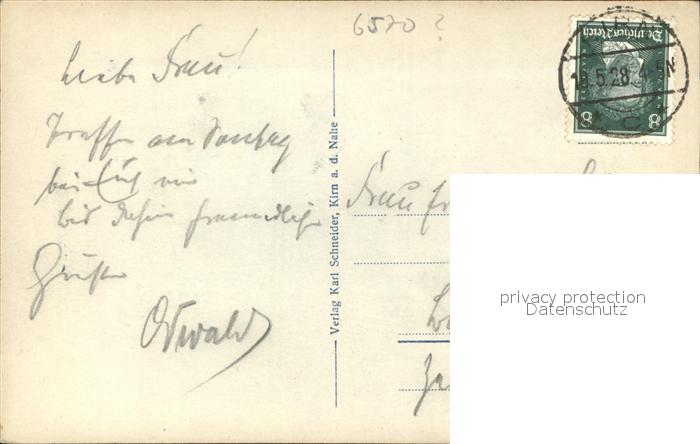 6570 ?
Deutsches Reich
8 8
5.28
C
Liebe Frau!
Treffe am Sonntag
bei Euch ein
bis dahin freundliche
Grüße
Oswald
Verlag Karl Schneider, Kirn a. d. Nahe
Frau
privacy protection
Datenschutz